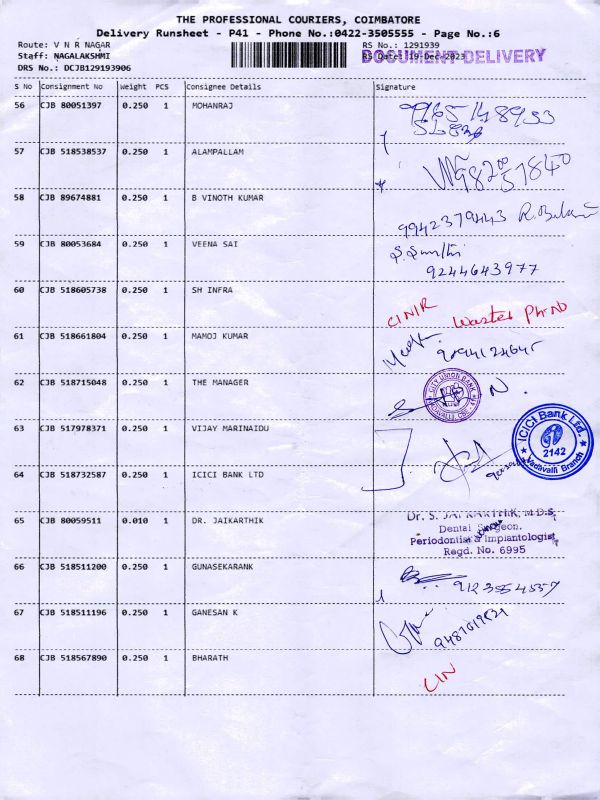 THE PROFESSIONAL COURIERS, COIMBATORE
Delivery Runsheet - P41 - Phone No.:0422-3505555 - Page No.:6
Route: V N R NAGAR RS No.: 1291939
Staff: NAGALAKSHMI RS Date: 19-Dec-2023 DOCUMENT DELIVERY
DRS No.: DCJB129193906
S No Consignment No Weight PCS Consignee Details Signature
56 CJB 80051397 0.250 1 MOHANRAJ
57 CJB 518538537 0.250 1 ALAMPALLAM
58 CJB 89674881 0.250 1 B VINOTH KUMAR
9942379443
59 CJB 80053684 0.250 1 VEENA SAI
9244643977
60 CJB 518605738 0.250 1 SH INFRA
61 CJB 518661804 0.250 1 MAMOJ KUMAR
62 CJB 518715048 0.250 1 THE MANAGER
CITY UNION BANK
63 CJB 517978371 0.250 1 VIJAY MARINAIDU
ICICI Bank Ltd.
2142
Vadavalli Branch
64 CJB 518732587 0.250 1 ICICI BANK LTD
65 CJB 80059511 0.010 1 DR. JAIKARTHIK
Dr. S. JAI KARTHIK, M.D.S,
Dental Surgeon.
Periodontist & Implantologist
Regd. No. 6995
66 CJB 518511200 0.250 1 GUNASEKARANK
67 CJB 518511196 0.250 1 GANESAN K
68 CJB 518567890 0.250 1 BHARATH